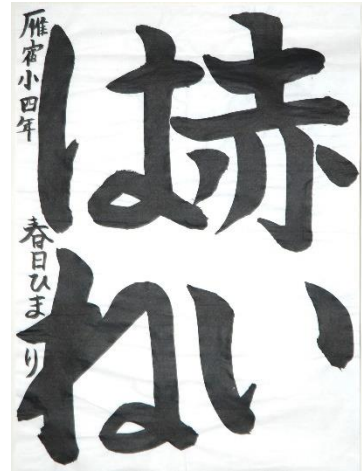 赤い
はね
雁宿小四年 春日ひまり